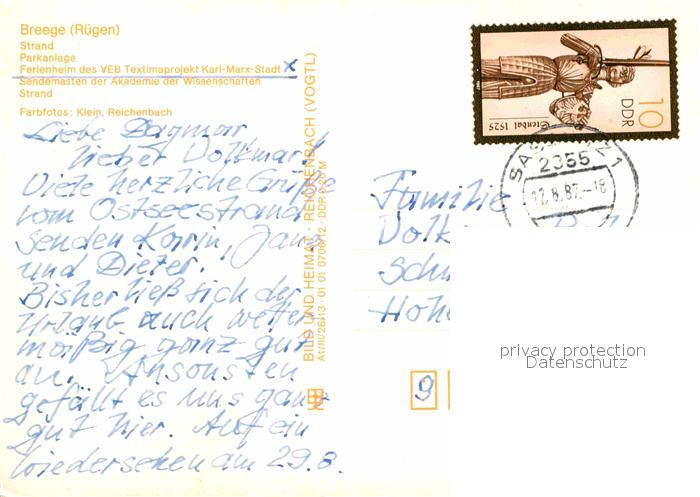 Breege (Rügen)
Strand
Parkanlage
Ferienheim des VEB Textimaprojekt Karl-Marx-Stadt x
Sendemasten der Akademie der Wissenschaften
Strand
Farbfotos: Klein, Reichenbach
Liebe Dagmar
lieber Volkmar!
Viele herzliche Grüße
vom Ostseestrand
senden Karin, Jana
und Dieter.
Bisher ließ sich der
Urlaub auch wetter-
mäßig ganz gut
an. Ansonsten
gefällt es uns ganz
gut hier. Auf ein
Wiedersehen am 29.8.
BILD UND HEIMAT · REICHENBACH (VOGTL)
A1/III/26/13 01 01 0706/12 DDR
10
DDR
Stendal 1525
SASSNITZ 1
2355
12.8.87.-18
Familie
Volk
Sch
Hohe
9
privacy protection
Datenschutz